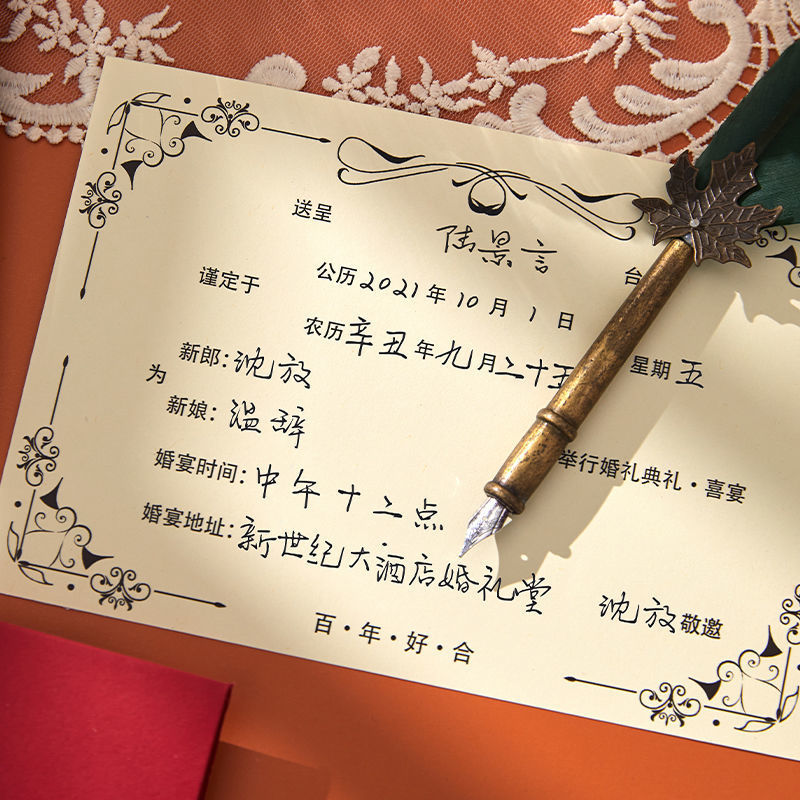 送呈 陆景言 台
谨定于 公历2021年10月1日
农历辛丑年九月二十五 星期五
为 新郎:沈放
新娘:温辞
举行婚礼典礼·喜宴
婚宴时间:中午十二点
婚宴地址:新世纪大酒店婚礼堂
沈放敬邀
百·年·好·合